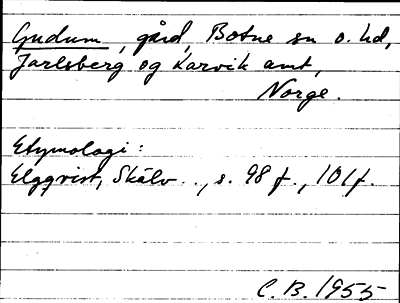 Gudum, gård, Botne sn o. hd,
Jarlsberg og Larvik amt,
Norge.
Etymologi:
Elgqvist, Skälv .., s. 98 f., 101 f.
C. B. 1955